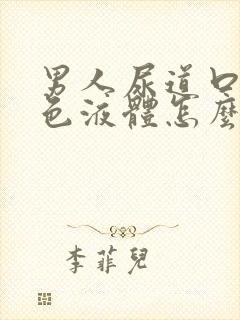 男人尿道口
色液體怎麼
李菲兒